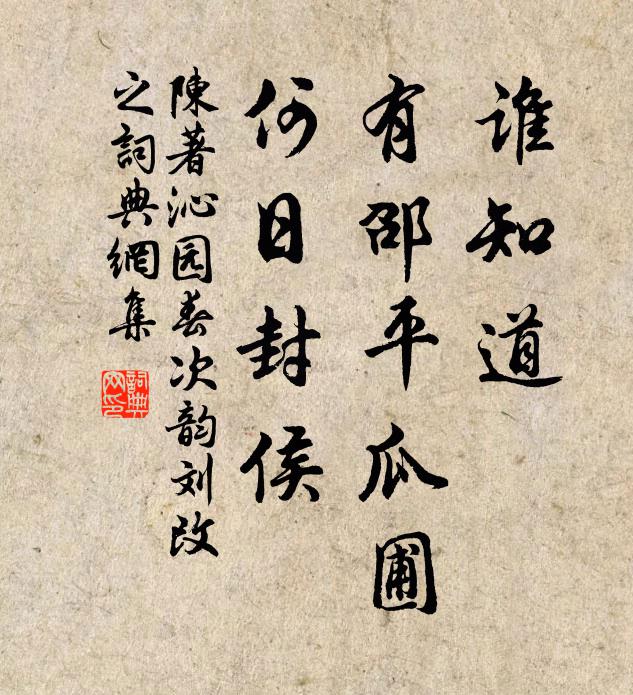 谁知道
有邵平瓜圃
何日封侯
陳著沁园春次韵刘改
之詞典網集
詞典
网印